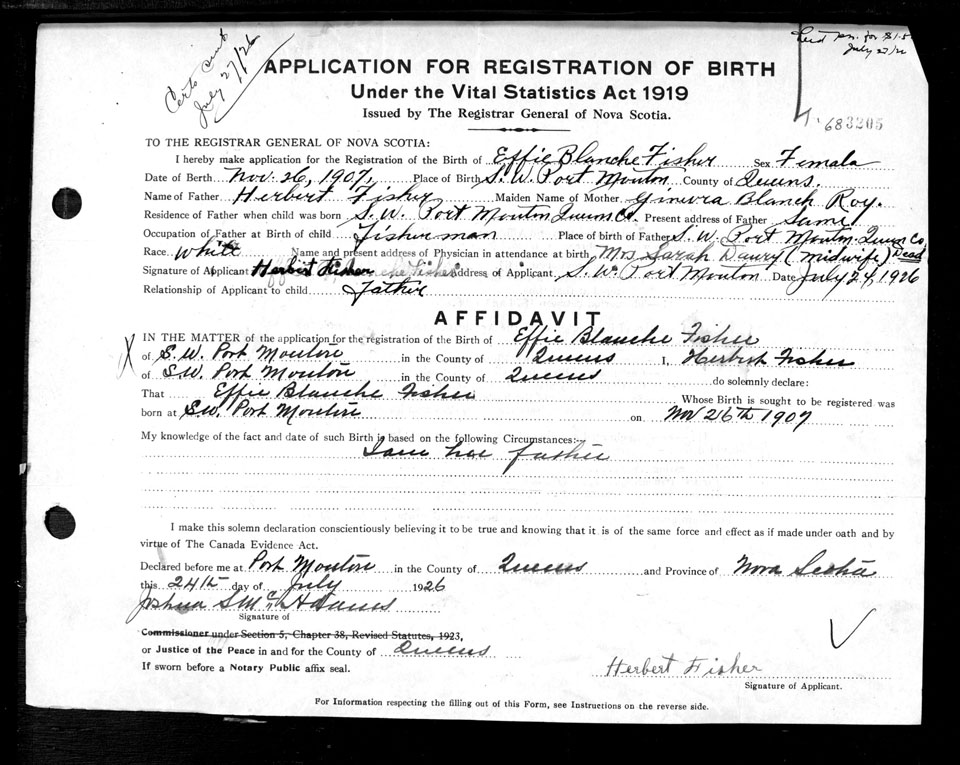 Certs cent
July 27/26
for $1.5
July 27/26
683205
APPLICATION FOR REGISTRATION OF BIRTH
Under the Vital Statistics Act 1919
Issued by The Registrar General of Nova Scotia.
TO THE REGISTRAR GENERAL OF NOVA SCOTIA:
I hereby make application for the Registration of the Birth of Effie Blanche Fisher Sex Female
Date of Berth Nov. 26, 1907, Place of Birth S. W. Port Mouton County of Queens.
Name of Father Herbert Fisher Maiden Name of Mother Ginevra Blanch Roy.
Residence of Father when child was born S. W. Port Mouton Queens Co. Present address of Father Same
Occupation of Father at Birth of child Fisherman Place of birth of Father S. W. Port Mouton. Queens Co
Race. White Name and present address of Physician in attendance at birth Mrs Sarah Daury (midwife) Dead
Signature of Applicant Herbert Fisher Address of Applicant S. W. Port Mouton Date July 24, 1926
Relationship of Applicant to child Father
AFFIDAVIT
IN THE MATTER of the application for the registration of the Birth of Effie Blanche Fisher
X of S. W. Port Mouton in the County of Queens I, Herbert Fisher
of S. W. Port Mouton in the County of Queens do solemnly declare:
That Effie Blanche Fisher Whose Birth is sought to be registered was
born at S. W. Port Mouton on Nov 26th 1907
My knowledge of the fact and date of such Birth is based on the following Circumstances:-
I am her father
I make this solemn declaration conscientiously believing it to be true and knowing that it is of the same force and effect as if made under oath and by
virtue of The Canada Evidence Act.
Declared before me at Port Mouton in the County of Queens and Province of Nova Scotia
this 24th day of July 1926
Joshua S McAdams
Signature of
Commissioner under Section 5, Chapter 38, Revised Statutes, 1923,
or Justice of the Peace in and for the County of Queens
If sworn before a Notary Public affix seal.
Herbert Fisher
Signature of Applicant.
For Information respecting the filling out of this Form, see Instructions on the reverse side.